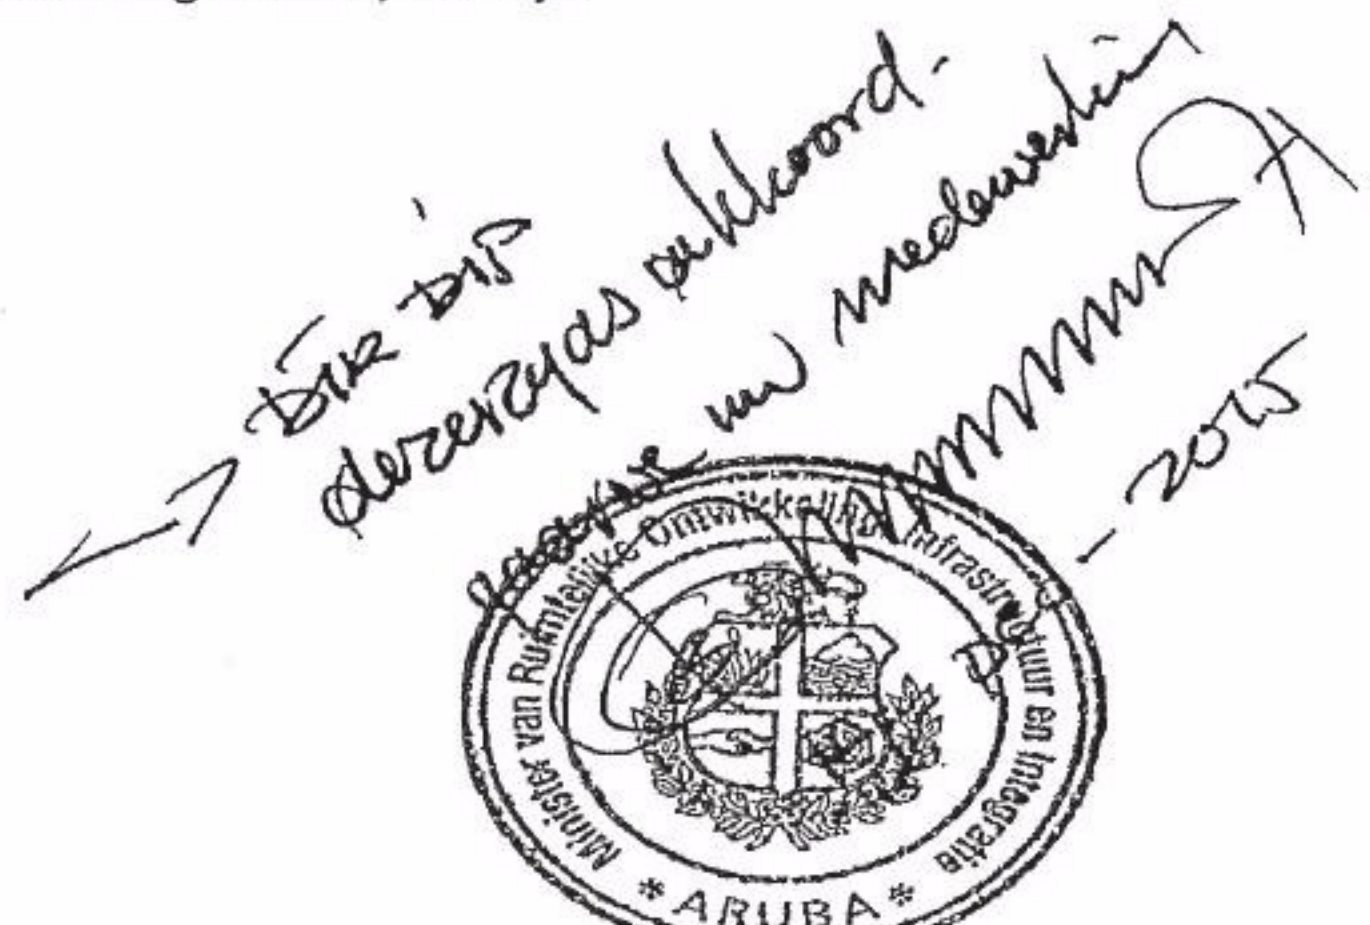 → DIR DIP
derezijds akkoord-
gaarne uw medewerking
-2015
Minister van Ruimtelijke Ontwikkeling, Infrastructuur en Integratie
* ARUBA *